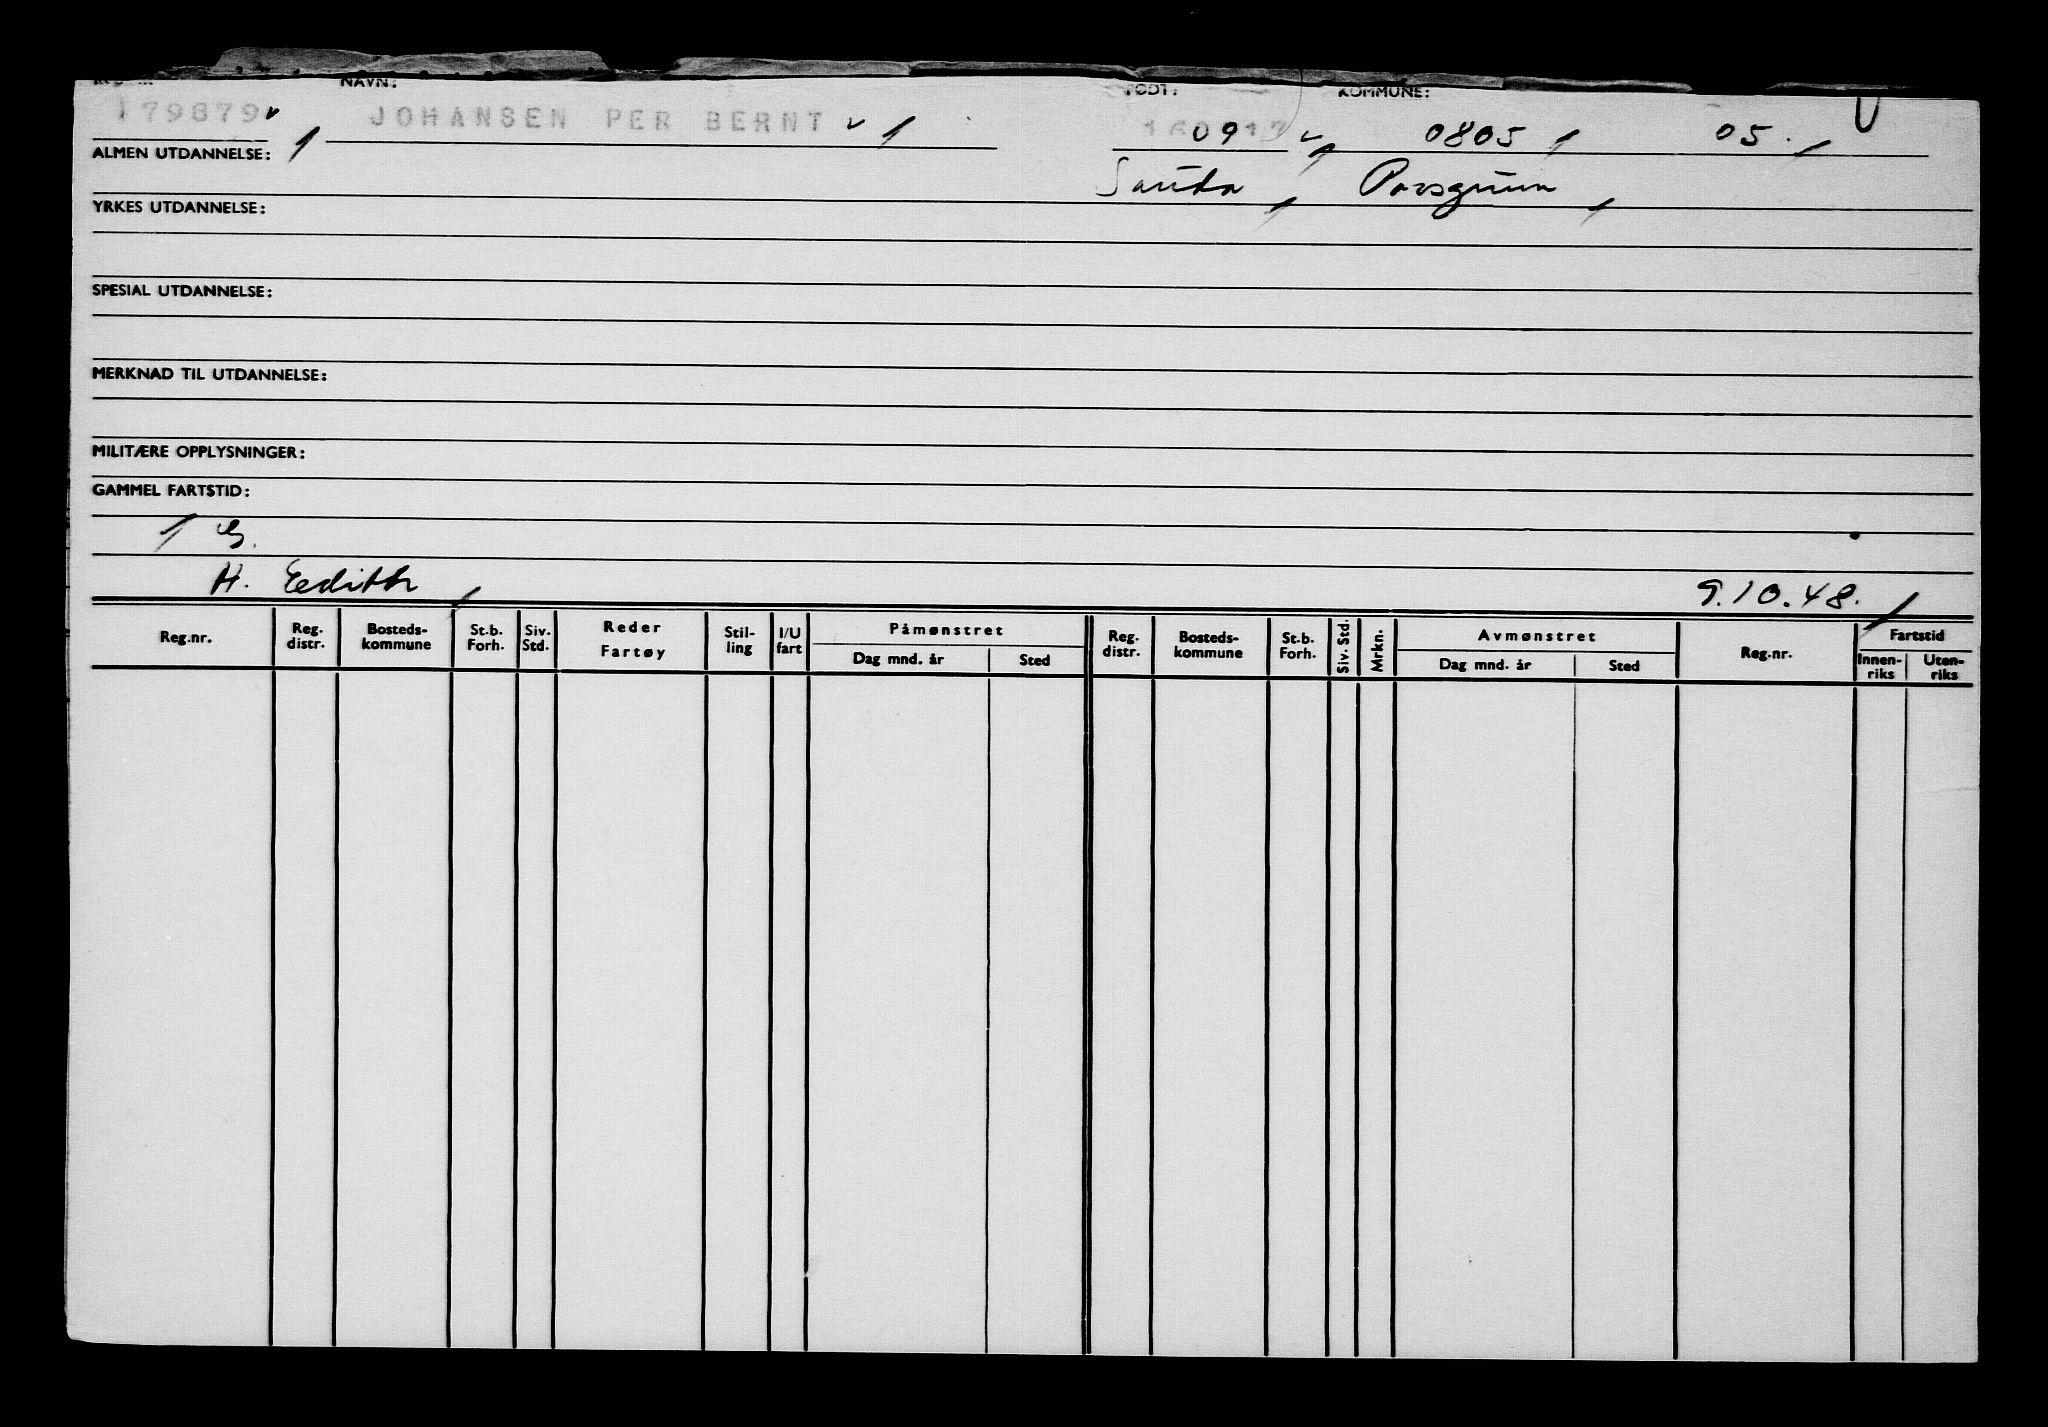 NAVN: KOMMUNE:
JOHANSEN PER BERNT 0805 05.
ALMEN UTDANNELSE:
Porsgrunn
YRKES UTDANNELSE:
SPESIAL UTDANNELSE:
MERKNAD TIL UTDANNELSE:
MILITÆRE OPPLYSNINGER:
GAMMEL FARTSTID:
G.
H. Eedith 9.10.48.
Reg.nr. Reg. distr. Bosteds-kommune St.b. Forh. Siv. Std. Reder Fartøy Stil-ling I/U fart Påmønstret Dag mnd. år Sted Reg. distr. Bosteds-kommune St.b. Forh. Siv. Std. Mrkn. Avmønstret Dag mnd. år Sted Reg.nr. Fartstid Innen-riks Uten-riks